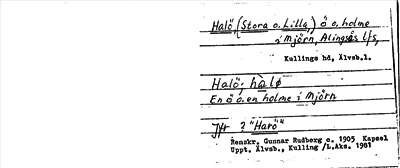 Halö, (Stora o. Lilla,) ö o. holme
i Mjörn, Alingsås lfs,
Kullings hd, Älvsb.l.
Halö; hàlø
En ö o. en holme i Mjörn
Jfr ? "Harö"
Renskr. Gunnar Rudberg o. 1905 Kapsel
Uppt. Älvsb., Kulling /L.Aks. 1981